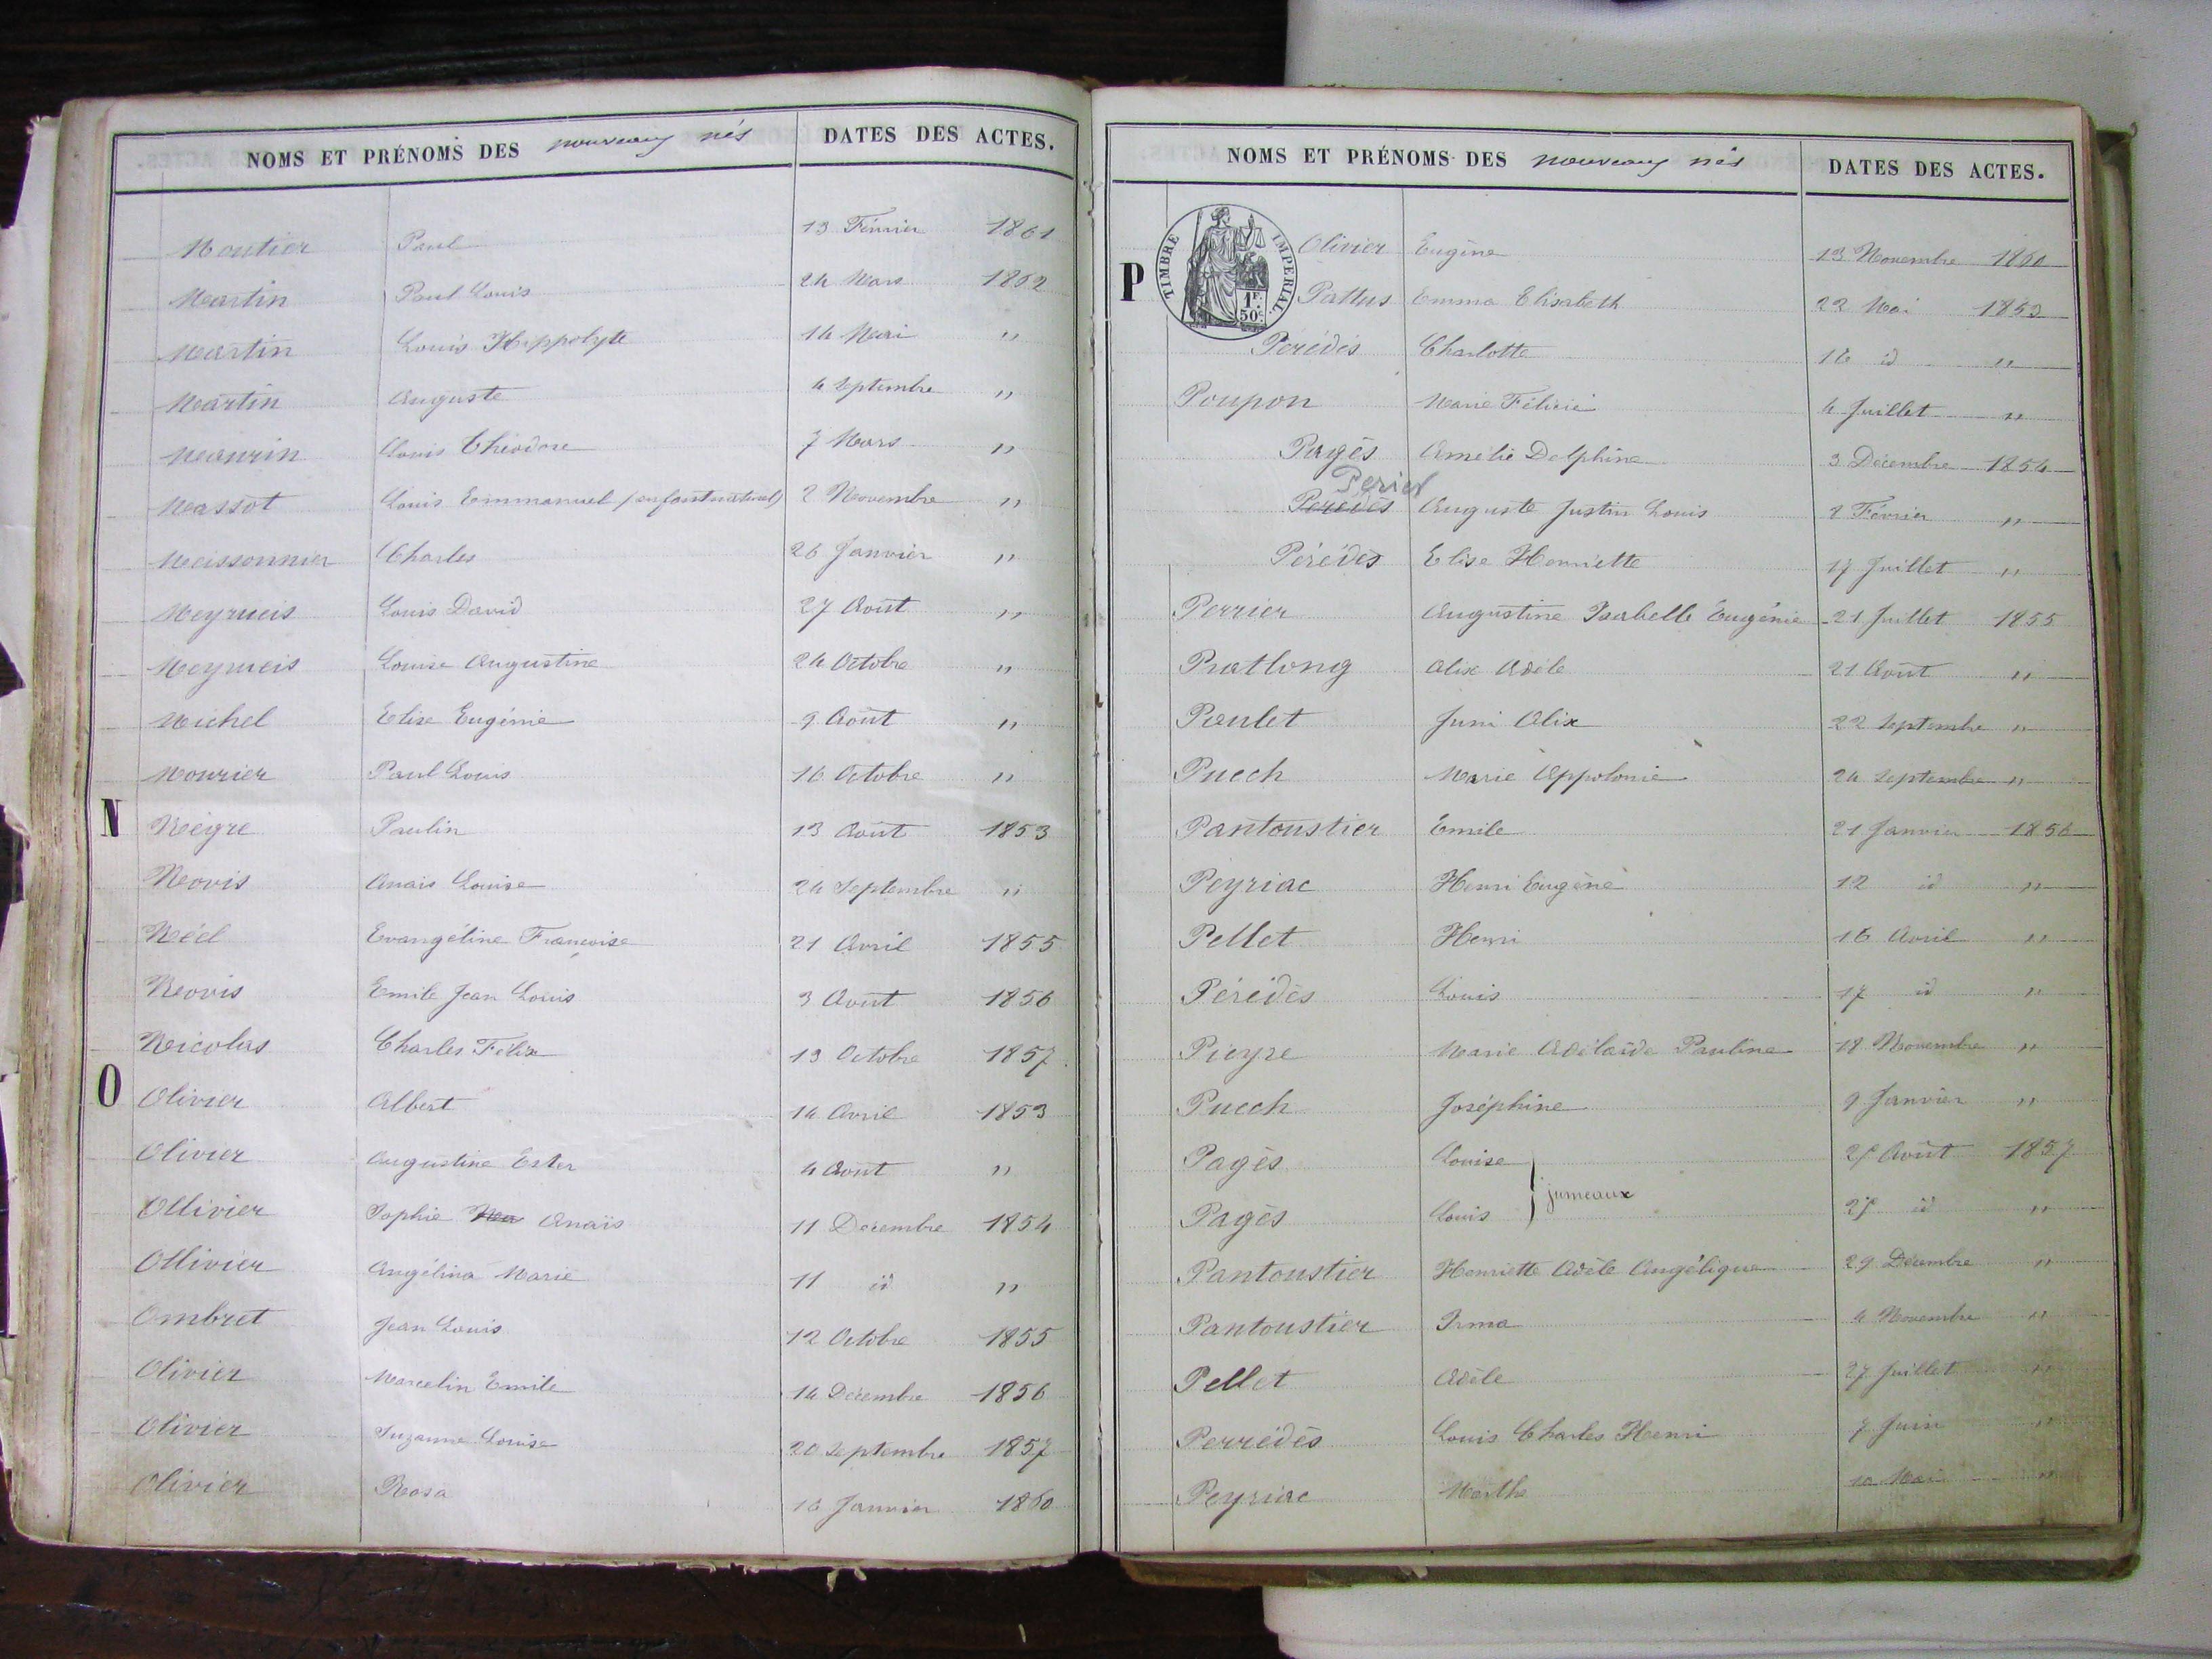 NOMS ET PRÉNOMS DES nouveaux nés DATES DES ACTES.
Moutier Paul 13 Février 1861
Martin Paul Louis 24 Mars 1862
Martin Louis Hippolyte 14 Mai "
Martin Auguste 4 Septembre "
Maurin Louis Théodore 7 Mars "
Massot Louis Emmanuel (enfant naturel) 2 Novembre "
Meissonnier Charles 26 Janvier "
Meyrueis Louis David 27 Août "
Meyrueis Louise Augustine 24 Octobre "
Michel Elise Eugénie 9 Août "
Mourier Paul Louis 16 Octobre "
N Nègre Paulin 13 Août 1853
Novis Anaïs Louise 24 Septembre "
Néel Evangéline Françoise 21 Avril 1855
Novis Emile Jean Louis 3 Août 1856
Nicolas Charles Félix 13 Octobre 1857
O Olivier Albert 14 Avril 1853
Olivier Augustine Ester 4 Août "
Ollivier Sophie Anaïs 11 Décembre 1854
Ollivier Angélina Marie 11 id "
Ombret Jean Louis 12 Octobre 1855
Olivier Marcelin Emile 14 Décembre 1856
Olivier Suzanne Louise 20 Septembre 1857
Olivier Rosa 16 Janvier 1860
NOMS ET PRÉNOMS DES nouveaux nés DATES DES ACTES.
TIMBRE IMPERIAL. 1F. 50c.
Olivier Eugène 13 Novembre 1860
P Pattus Emma Elisabeth 22 Mai 1853
Pérédès Charlotte 16 id "
Poupon Marie Félicie 4 Juillet "
Pagès Amélie Delphine 3 Décembre 1854
Perier
Peredès Auguste Justin Louis 2 Février "
Pérédès Elise Henriette 17 Juillet "
Perrier Augustine Isabelle Eugénie 21 Juillet 1855
Pratlong Alix Adèle 21 Août "
Paulet Juni Alix 22 Septembre "
Puech Marie Appolonie 24 Septembre "
Pantoustier Emile 21 Janvier 1856
Peyriac Henri Eugène 12 id "
Pellet Henri 16 Avril "
Pérédès Louis 17 id "
Pieyre Marie Adélaïde Pauline 18 Novembre "
Puech Joséphine 9 Janvier "
Pagès Louise Août 1857
jumeaux
Pagès Louis id "
Pantoustier Henriette Adèle Angélique 29 Décembre "
Pantoustier Irma 4 Novembre "
Pellet Adèle 27 Juillet "
Perrédès Louis Charles Henri 7 Juin "
Peyriac Marthe 10 Mai "